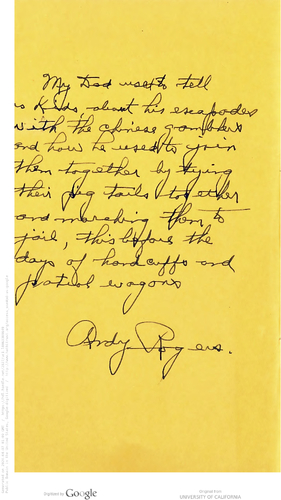 My Dad used to tell
us Kids about his escapades
with the chinese gamblers
and how he used to join
them together by tying
their pig tails together
and marching them to
jail, this before the
days of handcuffs and
patrol wagons
Andy Rogers.
Digitized by Google
Original from
UNIVERSITY OF CALIFORNIA